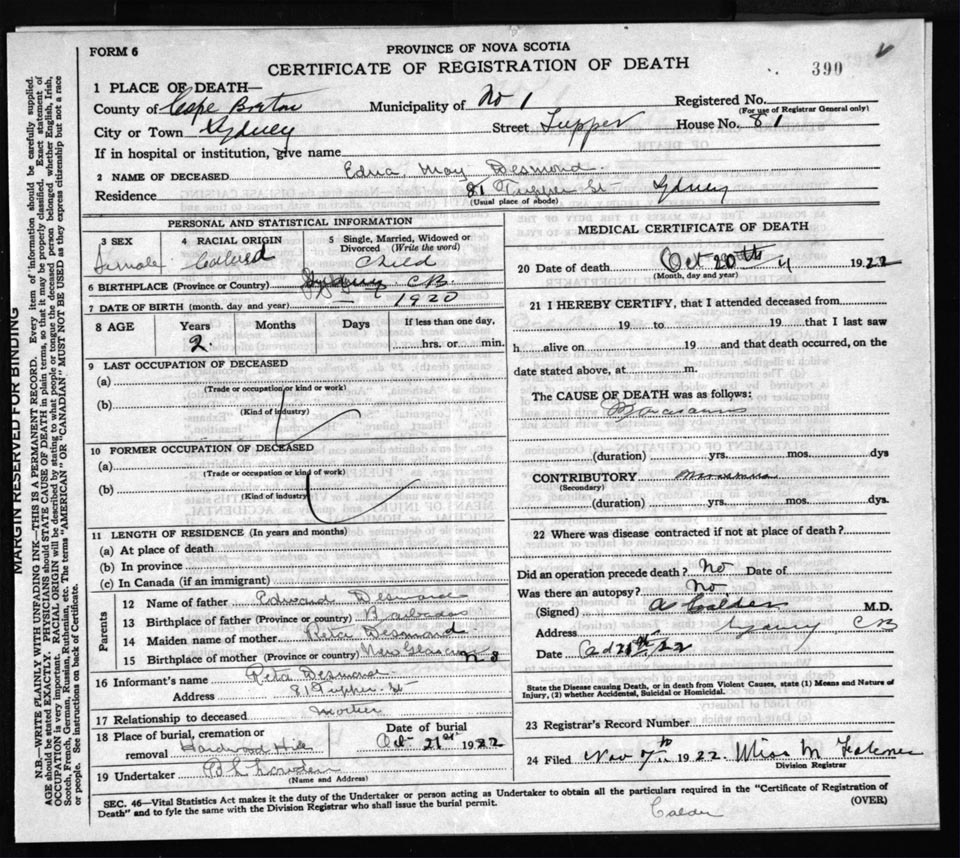 FORM 6
PROVINCE OF NOVA SCOTIA
CERTIFICATE OF REGISTRATION OF DEATH
390
1 PLACE OF DEATH—
County of Cape Breton Municipality of No 1 Registered No.
(For use of Registrar General only)
City or Town Sydney Street Tupper House No. 81
If in hospital or institution, give name
2 NAME OF DECEASED Edna May Desmond
Residence 81 Tupper St Sydney
(Usual place of abode)
PERSONAL AND STATISTICAL INFORMATION
3 SEX 4 RACIAL ORIGIN 5 Single, Married, Widowed or Divorced (Write the word)
Female Colored Child
6 BIRTHPLACE (Province or Country) Sydney CB
7 DATE OF BIRTH (month, day and year) 1920
8 AGE Years Months Days If less than one day,
2 hrs. or min.
9 LAST OCCUPATION OF DECEASED
(a)
(Trade or occupation or kind or work)
(b)
(Kind of industry)
10 FORMER OCCUPATION OF DECEASED
(a)
(Trade or occupation or kind of work)
(b)
(Kind of industry)
11 LENGTH OF RESIDENCE (In years and months)
(a) At place of death
(b) In province
(c) In Canada (if an immigrant)
Parents
12 Name of father Edward Desmond
13 Birthplace of father (Province or country) Barbados
14 Maiden name of mother Reta Desmond
15 Birthplace of mother (Province or country) New Glasgow N S
16 Informant's name Reta Desmond
Address 81 Tupper St
17 Relationship to deceased Mother
18 Place of burial, cremation or removal Hardwood Hill
Date of burial Oct 21st 1922
19 Undertaker
(Name and Address)
MEDICAL CERTIFICATE OF DEATH
20 Date of death Oct 20th 1922
(Month, day and year)
21 I HEREBY CERTIFY, that I attended deceased from
19 to 19 that I last saw
h alive on 19 and that death occurred, on the
date stated above, at m.
The CAUSE OF DEATH was as follows:
Marasmus
(duration) yrs. mos. dys
CONTRIBUTORY
(Secondary)
(duration) yrs. mos. dys.
22 Where was disease contracted if not at place of death?
Did an operation precede death? No Date of
Was there an autopsy? No
(Signed) A Calder M.D.
Address Sydney CB
Date
State the Disease causing Death, or in death from Violent Causes, state (1) Means and Nature of
Injury, (2) whether Accidental, Suicidal or Homicidal.
23 Registrar's Record Number
24 Filed Nov 7th 1922. Miss M
Division Registrar
SEC. 46—Vital Statistics Act makes it the duty of the Undertaker or person acting as Undertaker to obtain all the particulars required in the "Certificate of Registration of
Death" and to fyle the same with the Division Registrar who shall issue the burial permit.
(OVER)
Calder
MARGIN RESERVED FOR BINDING
N.B.—WRITE PLAINLY WITH UNFADING INK—THIS IS A PERMANENT RECORD. Every item of information should be carefully supplied.
AGE should be stated EXACTLY. PHYSICIANS should STATE CAUSE OF DEATH in plain terms, so that it may be properly classified. Exact statement of
OCCUPATION is very important. RACIAL ORIGIN will be described by stating to what people or tongue the deceased person belonged whether English, Irish,
Scotch, French, German, Russian, Ruthenian, etc. The terms "AMERICAN" OR "CANADIAN" MUST NOT BE USED as they express citizenship but not a race
or people. See instructions on back of Certificate.